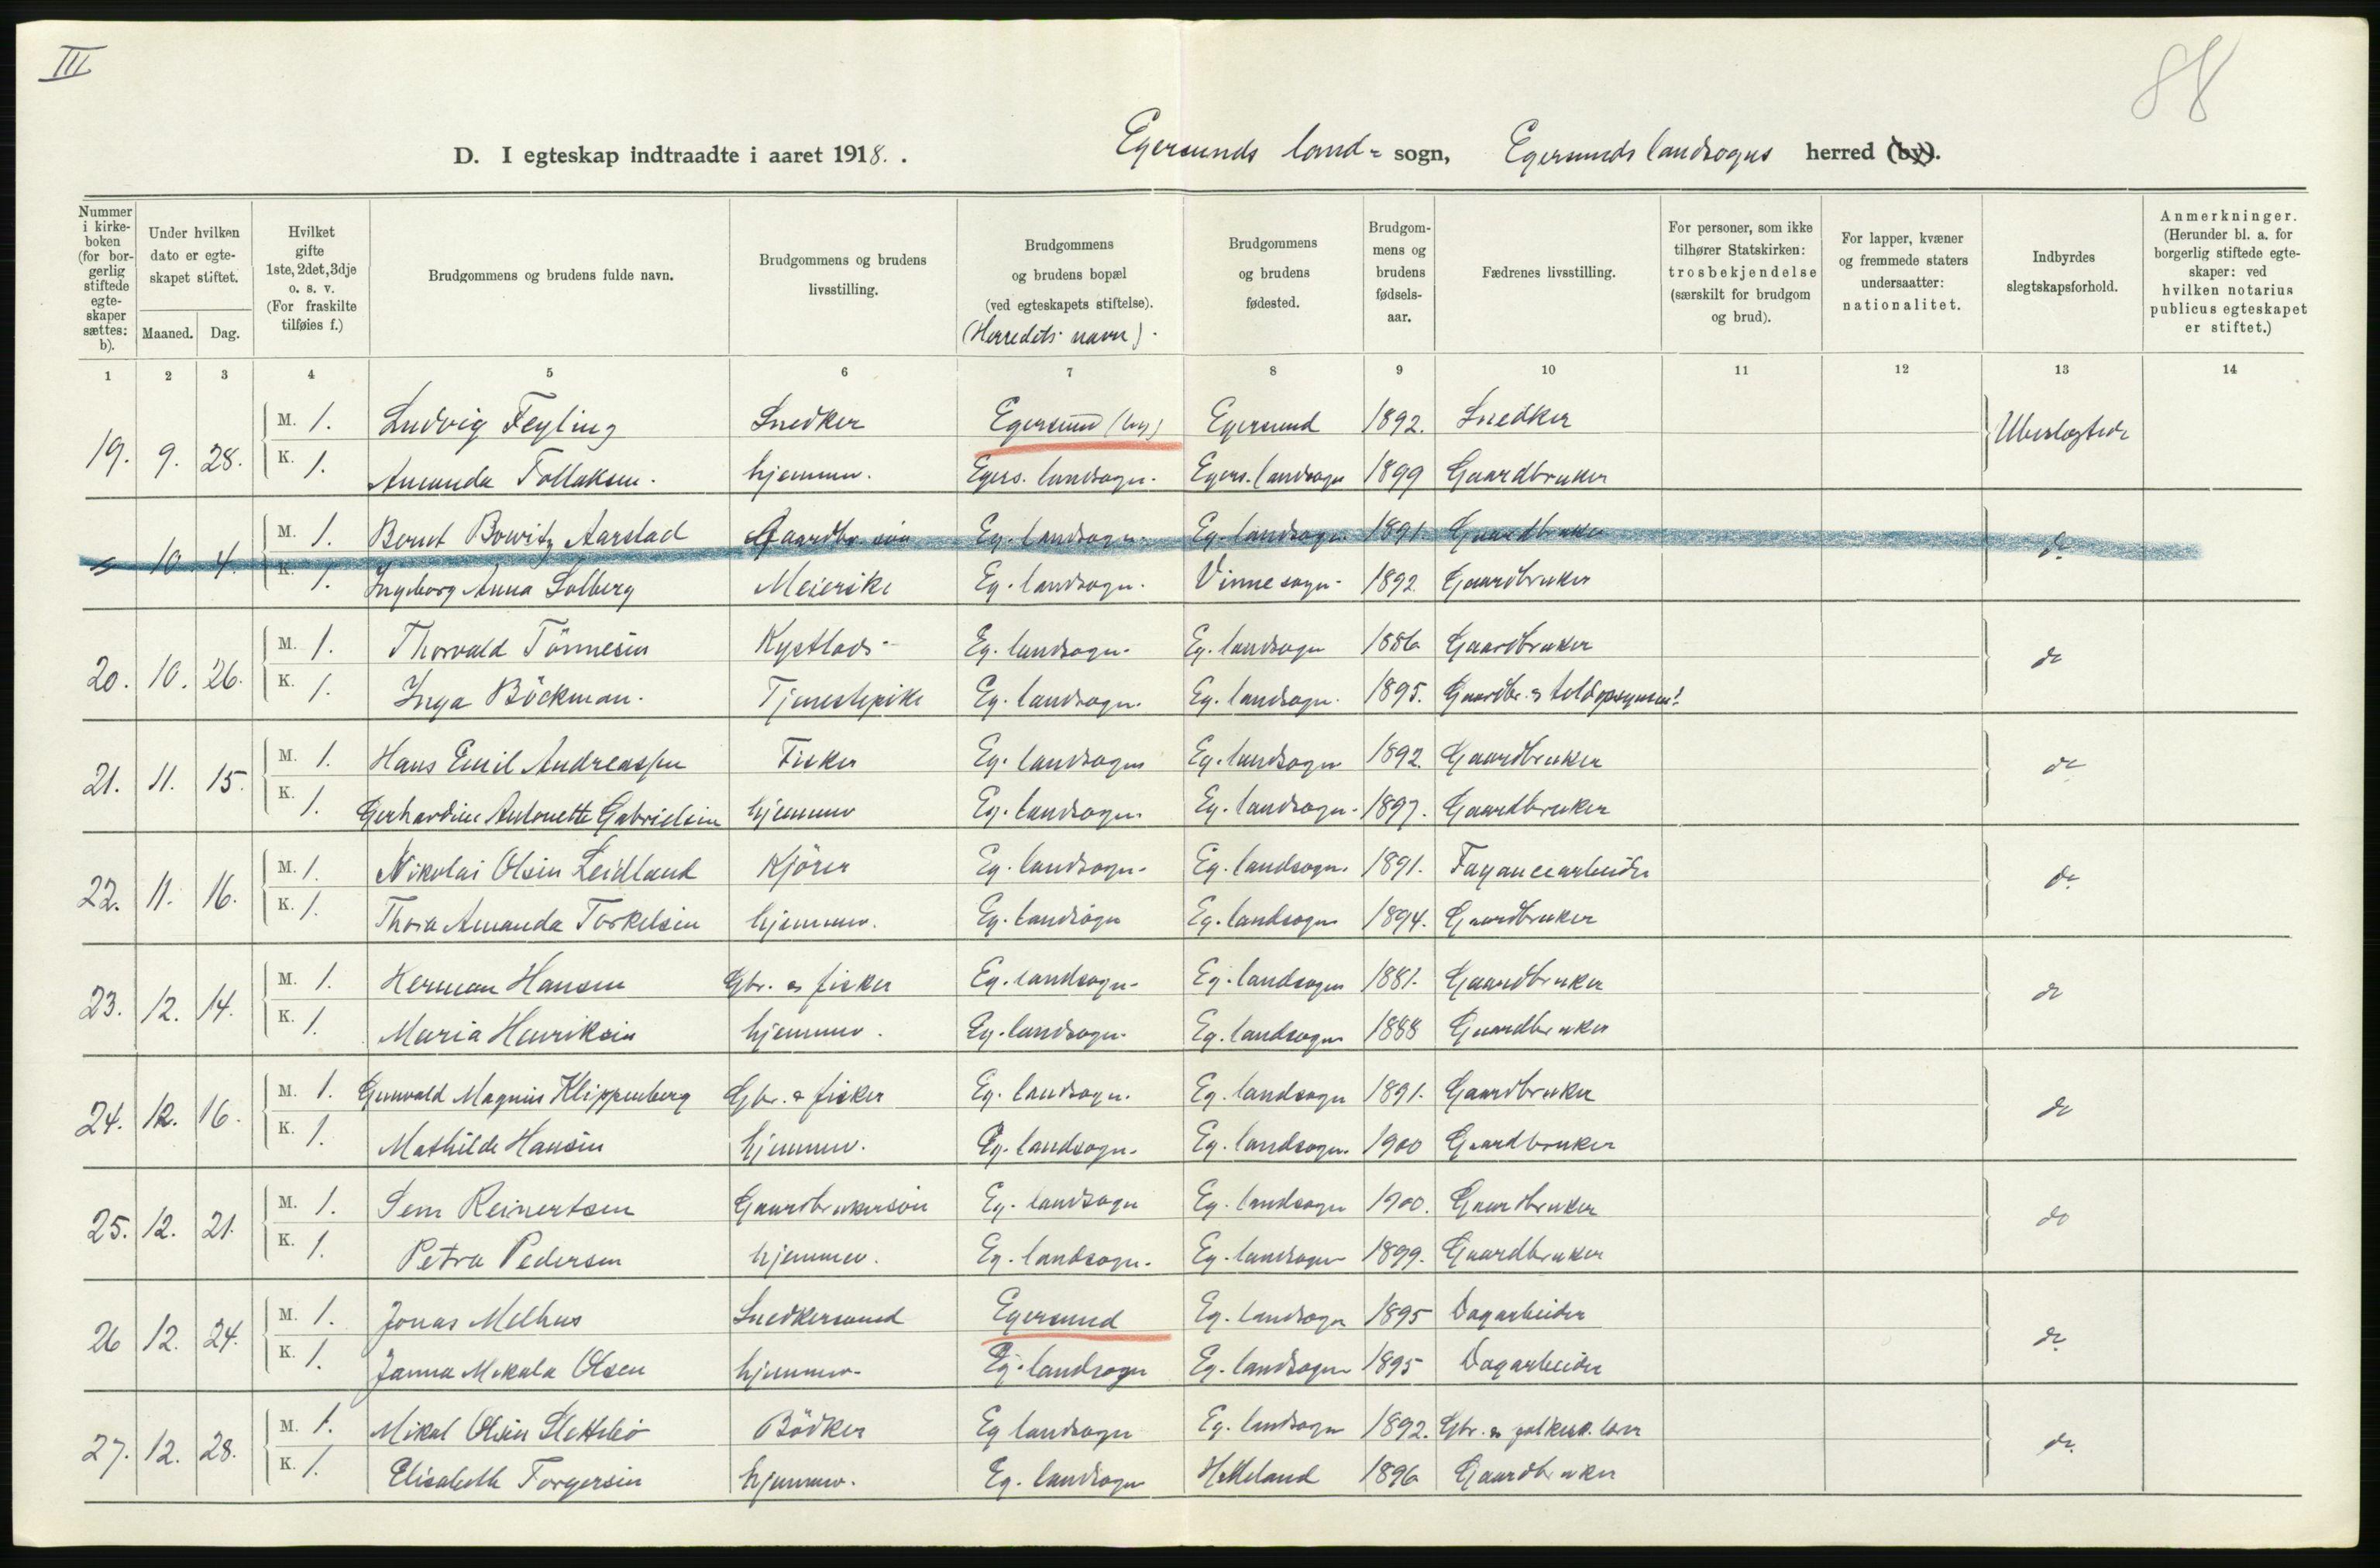 III
88
D. I egteskap indtraadte i aaret 1918. . Egersunds land- sogn, Egersunds landsogns herred (by).
Nummer i kirke-boken (for bor-gerlig stiftede egte-skaper sættes: b).
Under hvilken dato er egte-skapet stiftet.
Maaned. Dag.
Hvilket gifte 1ste, 2det, 3dje o. s. v. (For fraskilte tilføies f.)
Brudgommens og brudens fulde navn.
Brudgommens og brudens livsstilling.
Brudgommens og brudens bopæl (ved egteskapets stiftelse). (Herredets navn).
Brudgommens og brudens fødested.
Brudgom-mens og brudens fødsels-aar.
Fædrenes livsstilling.
For personer, som ikke tilhører Statskirken: trosbekjendelse (særskilt for brudgom og brud).
For lapper, kvæner og fremmede staters undersaatter: nationalitet.
Indbyrdes slegtskapsforhold.
Anmerkninger. (Herunder bl. a. for borgerlig stiftede egte-skaper: ved hvilken notarius publicus egteskapet er stiftet.)
1 2 3 4 5 6 7 8 9 10 11 12 13 14
19. 9. 28. M. 1. Ludvig Feyling Snedker Egersund (by) Egersund 1892. Snedker Ubeslegtede
K. 1. Amanda Tollaksen. hjemmev. Egers. landsogn. Egers. landsogn 1899 Gaardbruker
10 4. M. 1. Bernt Bowitz Aarstad Gaardbr. søn Eg. landsogn. Eg. landsogn 1891. Gaardbruker do
K. 1. Ingeborg Anna Solberg Meierske Eg. landsogn. Vinne sogn 1892. Gaardbruker
20. 10. 26. M. 1. Thorvald Tönnesen Kystlods Eg. landsogn. Eg. landsogn 1886 Gaardbruker do
K. 1. Inga Böckman. Tjenestepike Eg. landsogn. Eg. landsogn. 1895. Gaardbr. & toldopsynsm.
21. 11. 15. M. 1. Hans Emil Andreassen Fisker Eg. landsogn Eg. landsogn 1892. Gaardbruker do
K. 1. Gerhardine Antonette Gabrielsen hjemmev Eg. landsogn. Eg. landsogn. 1897. Gaardbruker
22. 11. 16. M. 1. Nikolai Olsen Leidland Kjörer Eg. landsogn. Eg. landsogn. 1891. Fayancearbeider do
K. 1. Thora Amanda Torkelsen hjemmev. Eg. landsogn Eg. landsogn 1894. Gaardbruker
23. 12. 14. M. 1. Herman Hansen Gbr. & fisker Eg. landsogn. Eg. landsogn 1881. Gaardbruker do
K. 1. Maria Henriksen hjemmev. Eg. landsogn. Eg. landsogn 1888 Gaardbruker
24. 12. 16. M. 1. Gunvald Magnus Klippenberg Gbr. & fisker Eg. landsogn. Eg. landsogn 1891. Gaardbruker do
K. 1. Mathilde Hansen hjemmev. Eg. landsogn. Eg. landsogn. 1900 Gaardbruker
25. 12. 21. M. 1. Sem Reinertsen Gaardbrukersön Eg. landsogn Eg. landsogn 1900. Gaardbruker do
K. 1. Petra Pedersen hjemmev. Eg. landsogn. Eg. landsogn 1899. Gaardbruker
26 12. 24. M. 1. Jonas Melhus Snedkersvend Egersund Eg. landsogn 1895 Dagarbeider do
K. 1. Janna Mikala Olsen hjemmev. Eg. landsogn Eg. landsogn 1895 Dagarbeider
27. 12. 28. M. 1. Mikal Olsen Slettebö Bödker Eg landsogn Eg. landsogn 1892. Gbr. & do.
K. 1. Elisabeth Torgersen hjemmev. Eg. landsogn Helleland 1896 Gaardbruker